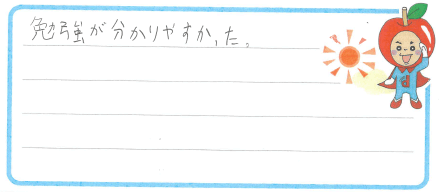 勉強が分かりやすかった。